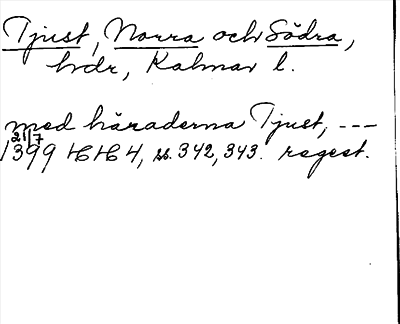 Tjust, Norra och Södra,
hdr, Kalmar l.
med häraderna Tjust, ---
21/7
1399 HH 4, ss. 342, 343. regest.